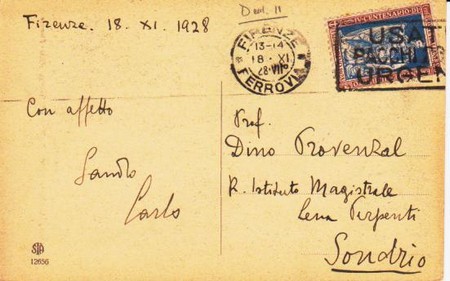 Firenze. 18. XI. 1928
FIRENZE
13-14
18·XI
28·VII
FERROVIA
IV·CENTENARIO·DI
USAT
PACCHI
URGEN
Con affetto
Sandro
Carlo
Prof.
Dino Provenzal
R. Istituto Magistrale
Lena Perpenti
Sondrio
STA
12656